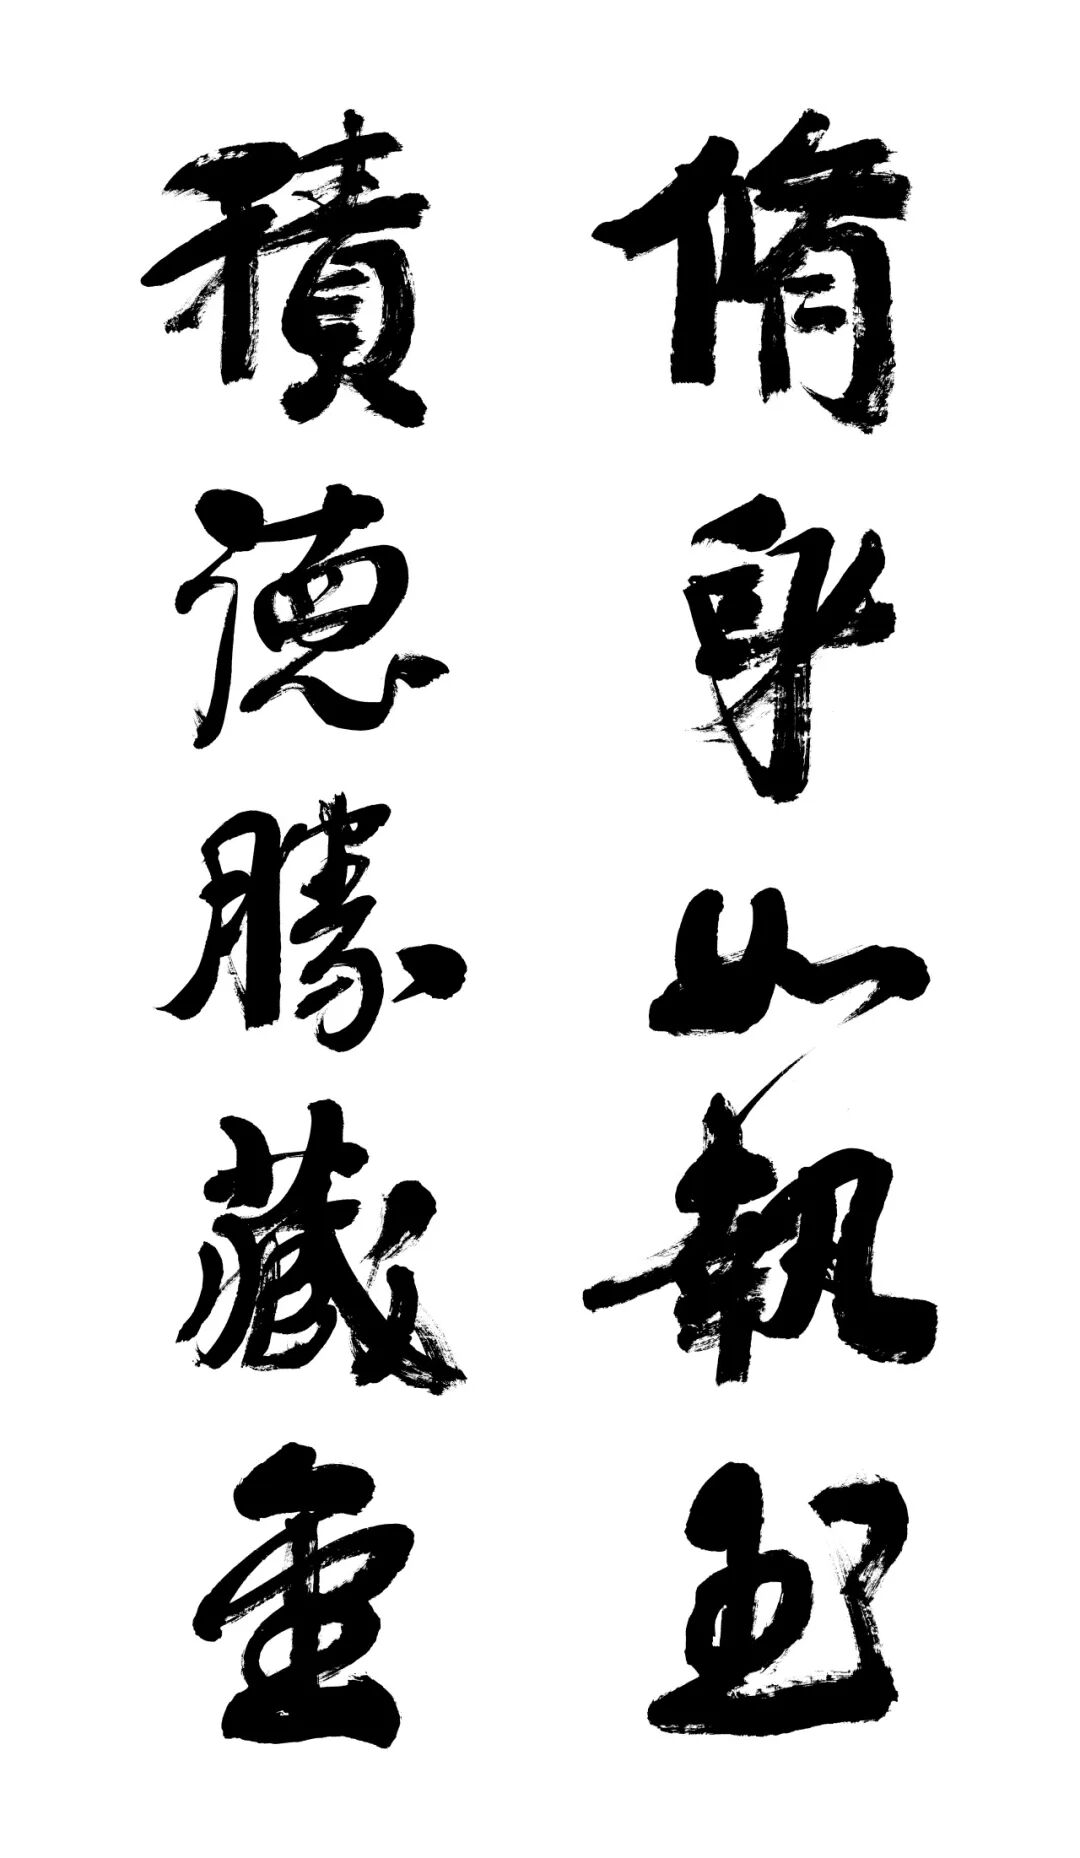 脩身如執玉
積德勝藏金